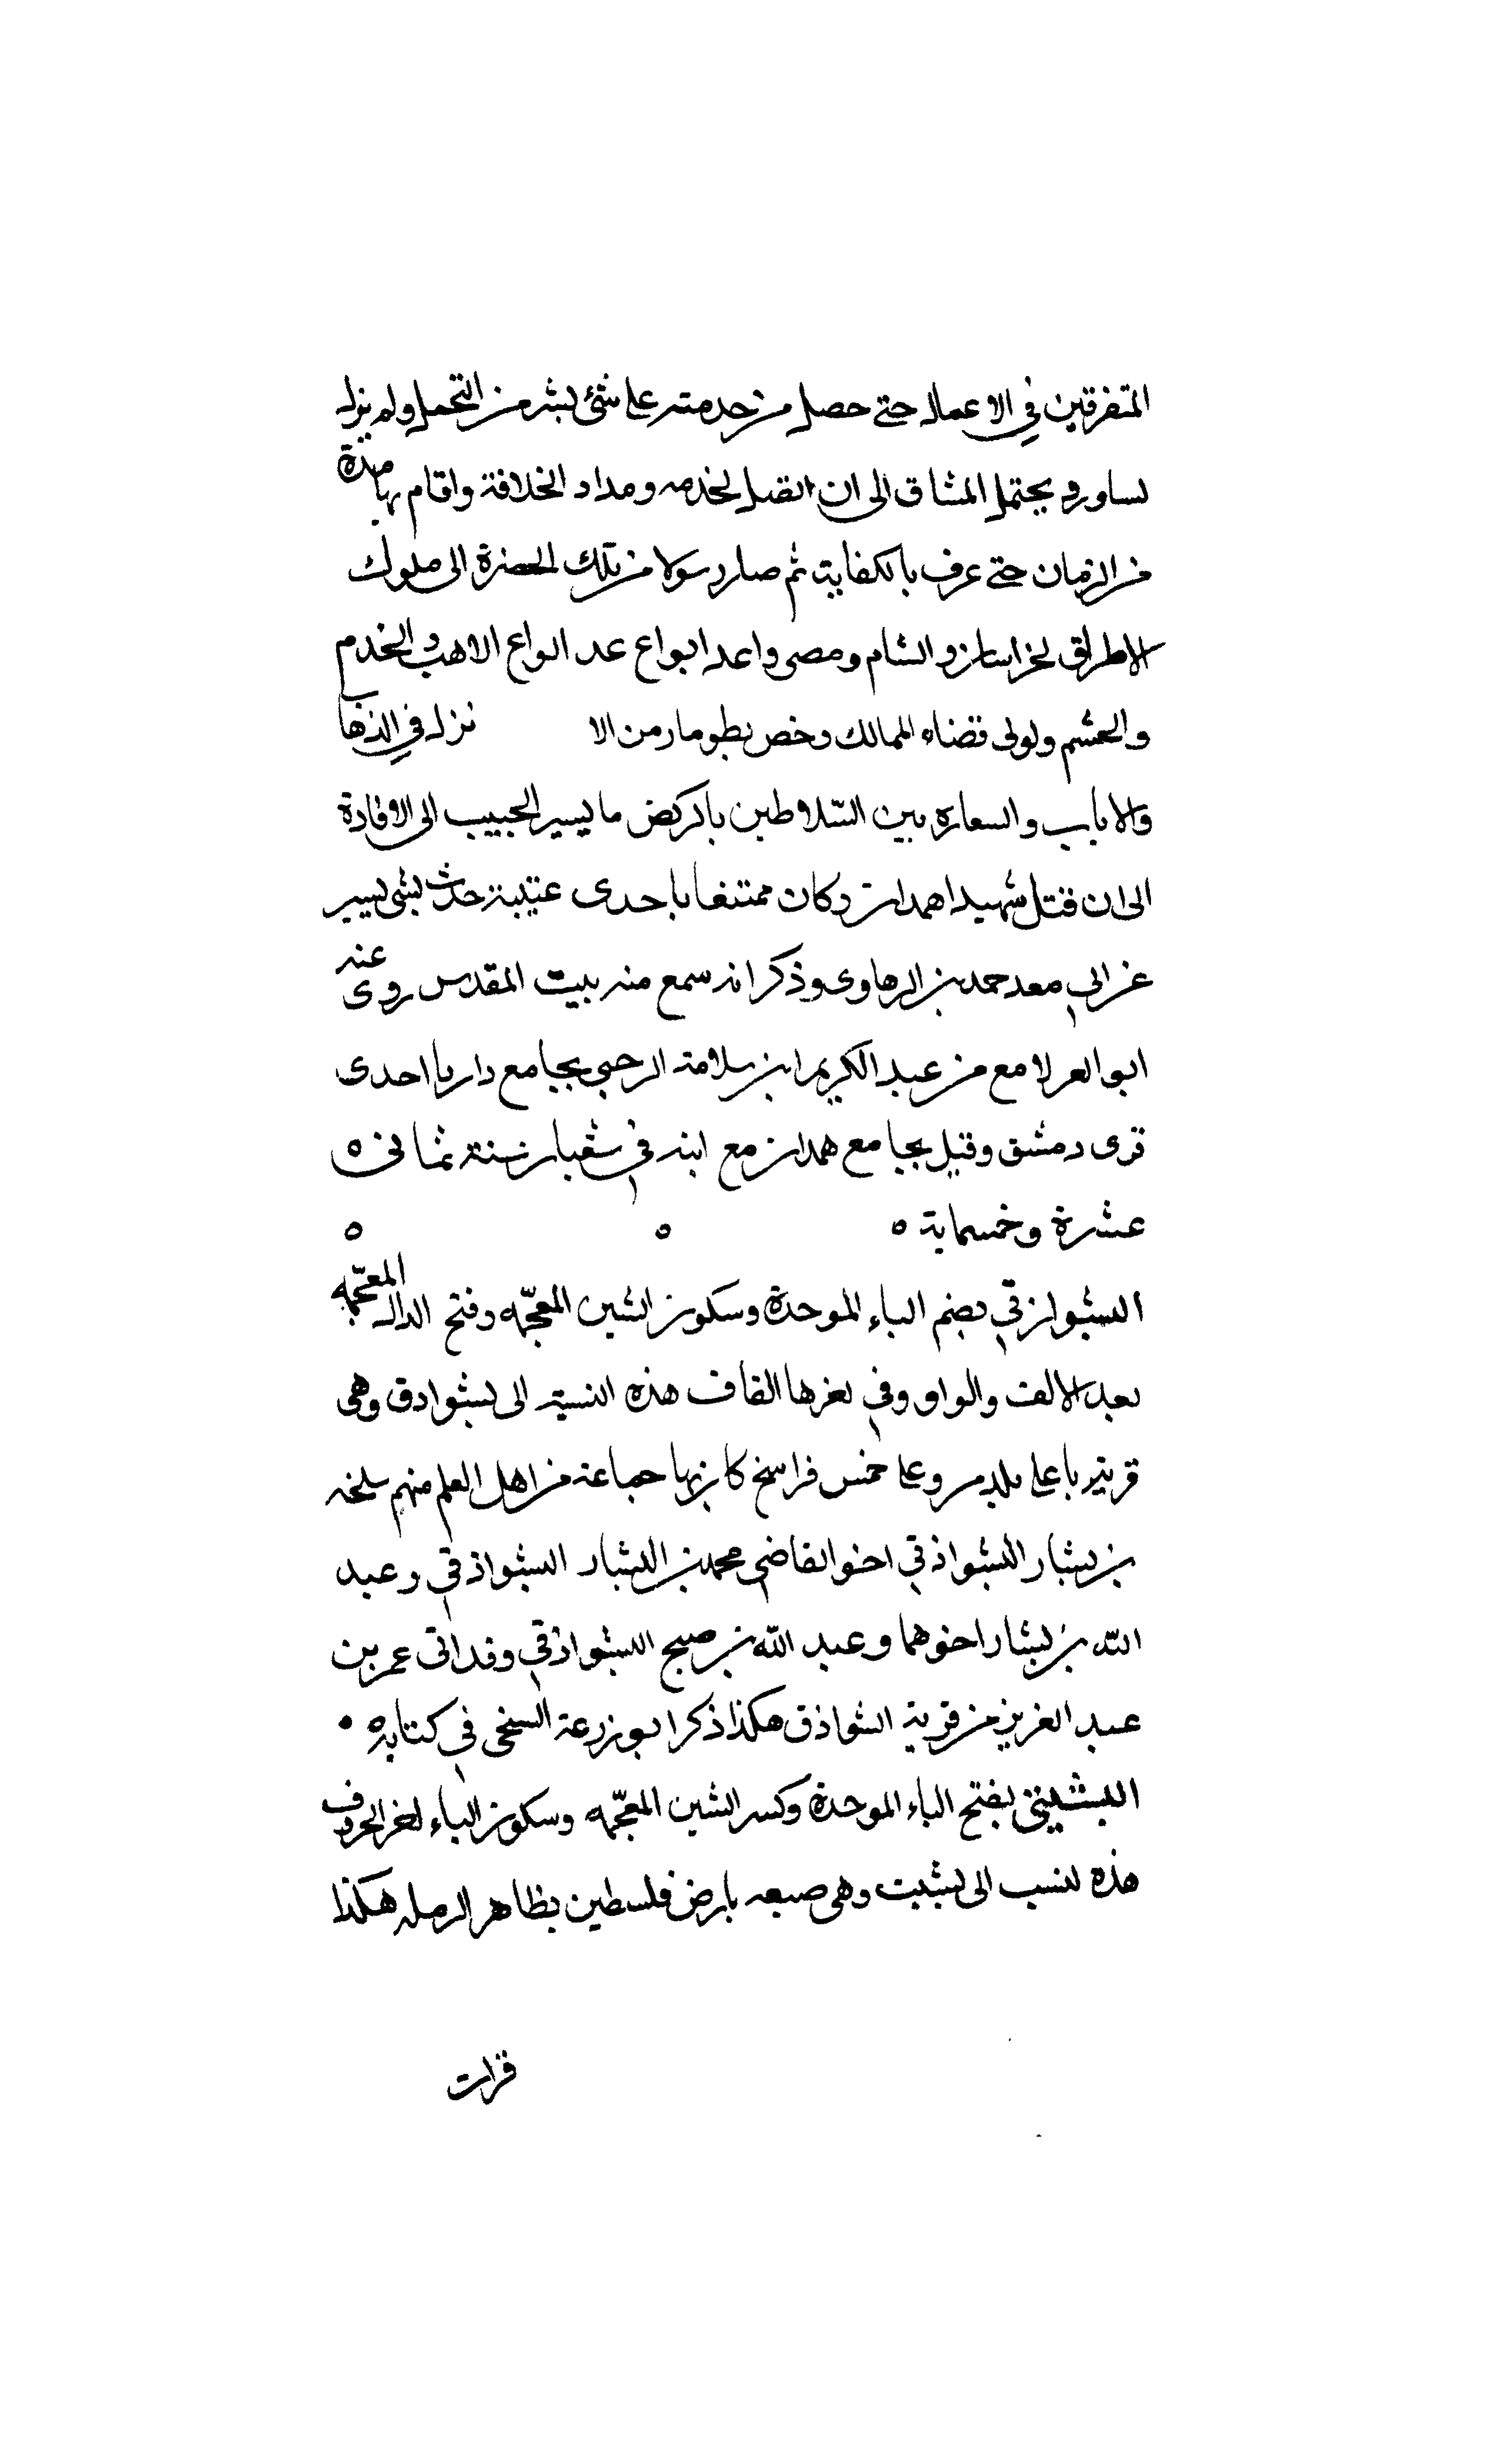 المتفرقين في الاعمال حتى حصل من خدمته على شئ بشر من التحمل ولم يزل
لساور و يحتمل المشاق الى ان اتصل لخدمه ومداد الخلافة واقام بها مدة
من الزمان حتى عرف بالكفاية ثم صار رسولا من تلك الحضرة الى ملوك
الاطراف لخراسان والشام ومصر واعد ابواع عد انواع الاهب والخدم
والحشم ولولى قضاء الممالك وخص بطومار من الا نزل في الذهاب
والاياب والسعاره بين السلاطين بالركض ما يسير الحبيب الى الافادة
الى ان قتل شهيدا همدان وكان ممتنعا باحدى عتيبة حدث بشئ يسير
عن ابى معد حمد بن الرهاوى وذكر انه سمع منه ببيت المقدس روى عنه
ابو العر لامع من عبد الكريم ابن سلامة الرحبى بجامع داريا احدى
قرى دمشق وقتل بجامع همدان مع ابنه في شعبان سنة ثمانى ٥
عشرة وخمسماية ٥ ٥ ٥
البشوازقي بضم الباء الموحدة وسكون الشين المعجمه وفتح الدال المعجمه
بعد الالف والواو وفى لغرها القاف هذه النسبة الى بشوادق وهى
قرية باعلى بلد مرو على خمس فراسخ كان بها جماعة من اهل العلم منهم سلمة
بن بشار البشواذقي اخو القاضى محمد بن البشار البشواذقي وعبد
الله بن بشار اخوهما وعبد الله بن صبيح البشواذقي وفد اتى عمر بن
عبد العزيز من قرية الشواذق هكذا ذكر ابو زرعة السنجى في كتابه ٥
البشيتى بفتح الباء الموحدة وكسر الشين المعجمه وسكون الياء اخر الحروف
هذه لنسب الى بشيت وهى صيعه بارض فلسطين بظاهر الرمله هكذا
قرات